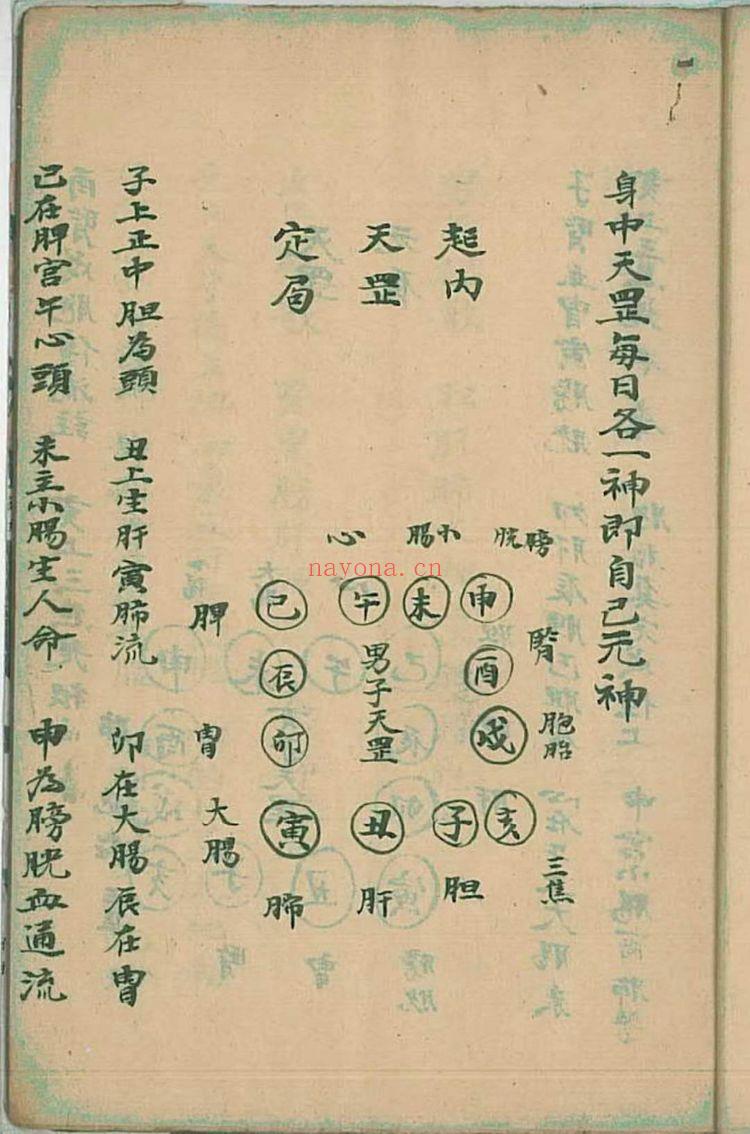 身中天罡每日各一神即自己元神
起内
天罡
定局
膀胱
小腸
心
申
未
午
巳
腎
酉
辰
脾
男子天罡
胞胎
戌
卯
胃
亥
子
丑
寅
大腸
三焦
胆
肝
肺
子上正中胆為頭 丑上生肝寅肺流 卯在大腸辰在胃
巳在脾宫午心頭 未立小腸生人命 申為膀胱血通流
navona.cn